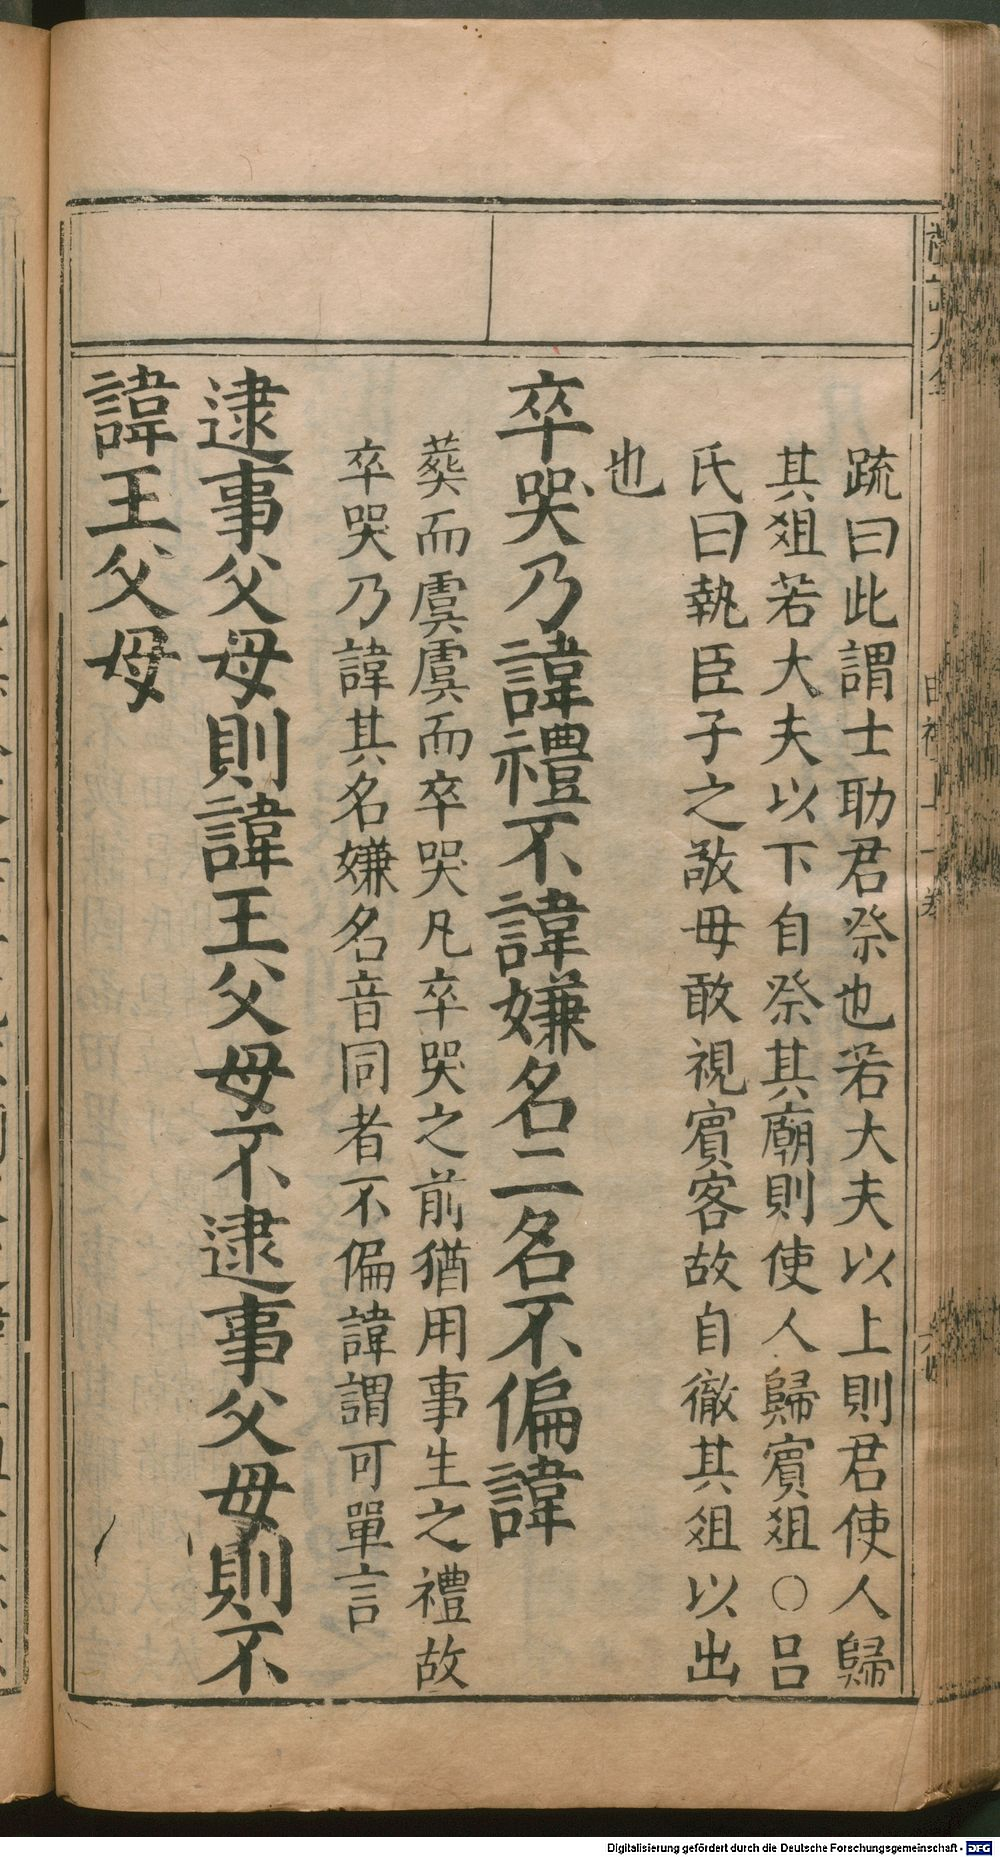 疏曰此謂士助君祭也若大夫以上則君使人歸
其俎若大夫以下自祭其廟則使人歸賓俎○呂
氏曰執臣子之敬毋敢視賓客故自徹其俎以出
也
卒哭乃諱禮不諱嫌名二名不偏諱
葬而虞虞而卒哭凡卒哭之前猶用事生之禮故
卒哭乃諱其名嫌名音同者不偏諱謂可單言
逮事父母則諱王父母不逮事父母則不
諱王父母
Digitalisierung gefördert durch die Deutsche Forschungsgemeinschaft - DFG